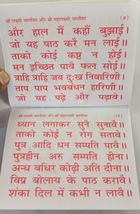 श्री लक्ष्मी चालीसा और श्री महालक्ष्मी चालीसा
और हाल मैं कहौं बुझाई।
जो यह पाठ करै मन लाई।
ताको कोई कष्ट न होई।
मन इच्छित पावै फल सोई।
त्राहि त्राहि जय दुःख निवारिणी।
ताप भव बंधन हारिणी।
जो यह पढ़ै और पढ़ावै।
श्री लक्ष्मी चालीसा और श्री महालक्ष्मी चालीसा
ध्यान लगाकर सुनै सुनावै।
ताको कोई न रोग सतावै।
पुत्र आदि धन सम्पति पावै।
पुत्रहीन अरु सम्पति हीना।
अन्ध बधिर कोढ़ी अति दीना।
विप्र बोलाय कै पाठ करावै।
शंका दिल में कभी न लावै।